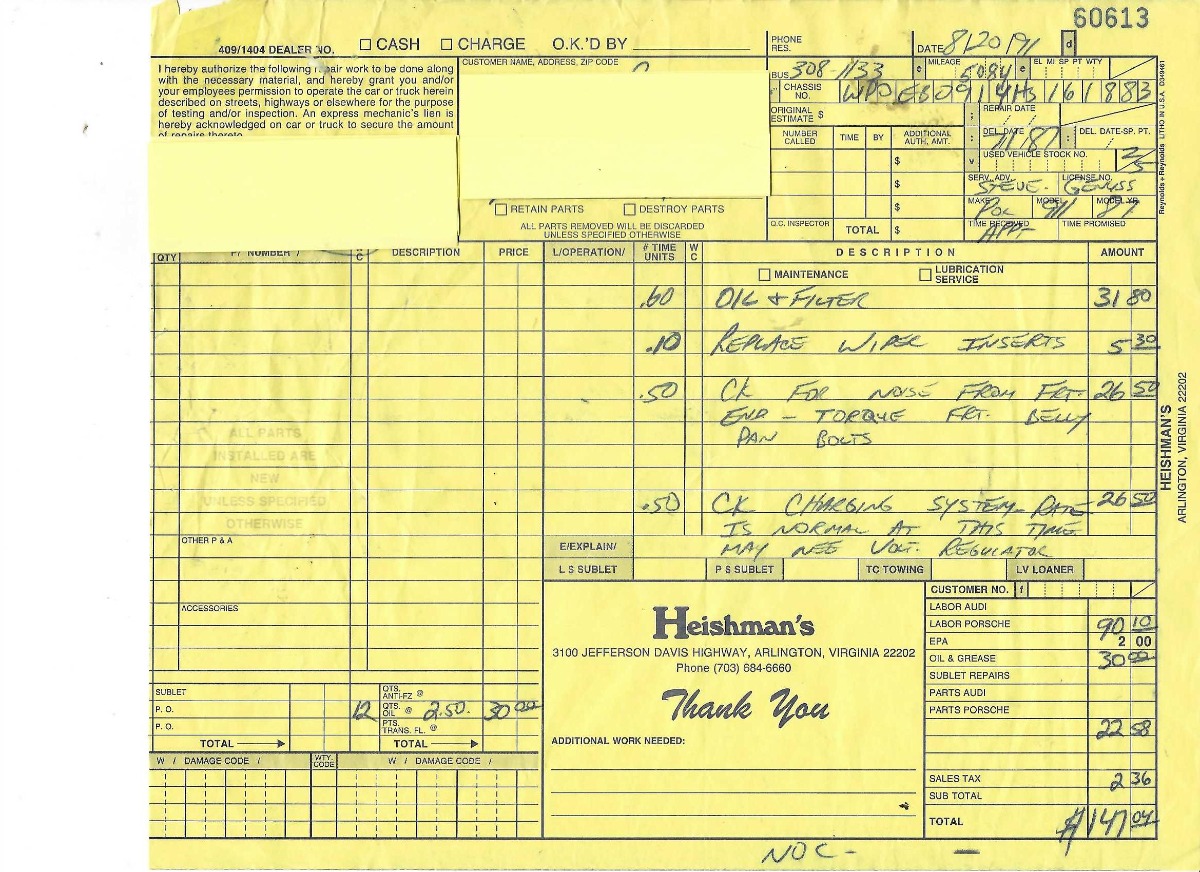 60613
409/1404 DEALER NO. CASH CHARGE O.K.'D BY
PHONE
RES.
DATE 8/20/91
I hereby authorize the following repair work to be done along
with the necessary material, and hereby grant you and/or
your employees permission to operate the car or truck herein
described on streets, highways or elsewhere for the purpose
of testing and/or inspection. An express mechanic's lien is
hereby acknowledged on car or truck to secure the amount
of repairs thereto.
CUSTOMER NAME, ADDRESS, ZIP CODE
BUS 308-1133
MILEAGE 5084
EL MI SP PT WTY
CHASSIS
NO. WPOEB0914HS161883
ORIGINAL
ESTIMATE $
REPAIR DATE
NUMBER
CALLED TIME BY ADDITIONAL
AUTH, AMT.
DEL. DATE /1/87 DEL. DATE-SP. PT.
USED VEHICLE STOCK NO.
$
$
$
SERV. ADV. STEVE. LICENSE NO.
MAKE POR MODEL 911 MODEL YR. 87
Q.C. INSPECTOR TOTAL $
TIME RECEIVED APPT TIME PROMISED
RETAIN PARTS DESTROY PARTS
ALL PARTS REMOVED WILL BE DISCARDED
UNLESS SPECIFIED OTHERWISE
Reynolds + Reynolds LITHO IN U.S.A. D34961
QTY P/ NUMBER / C DESCRIPTION PRICE L/OPERATION/ # TIME
UNITS W
C DESCRIPTION AMOUNT
MAINTENANCE LUBRICATION
SERVICE
.60 OIL & FILTER 31 80
.10 REPLACE WIPER INSERTS 5 30
.50 CK FOR NOISE FROM FRT. 26 50
END - TORQUE FRT. BELLY
PAN BOLTS
.50 CK CHARGING SYSTEM - RATE 26 50
IS NORMAL AT THIS TIME
MAY NEE VOLT. REGULATOR
ALL PARTS
INSTALLED ARE
NEW
UNLESS SPECIFIED
OTHERWISE
HEISHMAN'S
ARLINGTON, VIRGINIA 22202
OTHER P & A
E/EXPLAIN/
L S SUBLET P S SUBLET TC TOWING LV LOANER
ACCESSORIES
Heishman's
3100 JEFFERSON DAVIS HIGHWAY, ARLINGTON, VIRGINIA 22202
Phone (703) 684-6660
Thank You
ADDITIONAL WORK NEEDED:
CUSTOMER NO. f
LABOR AUDI
LABOR PORSCHE 90 10
EPA 2 00
OIL & GREASE 30 00
SUBLET REPAIRS
PARTS AUDI
PARTS PORSCHE
22 58
SALES TAX 2 36
SUB TOTAL
TOTAL $147 04
SUBLET QTS.
ANTI-FZ @
P. O. 12 QTS.
OIL @ 2.50. 30 00
P. O. PTS.
TRANS. FL. @
TOTAL TOTAL
W / DAMAGE CODE / WTY.
CODE W / DAMAGE CODE /
NOC -